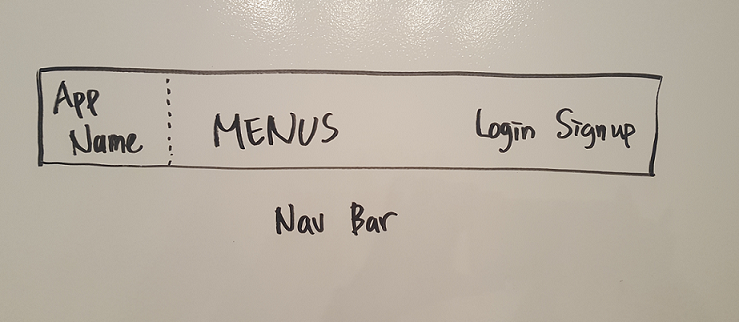 App
Name
MENUS
Login Signup
Nav Bar